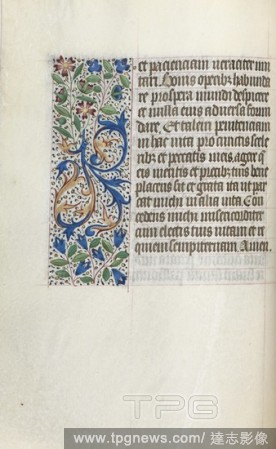 et pacienciam veraciter imi
tari. Bonis operib; habunda
re prospera mundi despicere
et nulla eius adversa formi
dare. Et talem penitenciam
in hac vita pro cunctis scele
rib; et peccatis meis agere q
eis meritis et precib; tuis bene
placens sit et grata ita ut par
cat nulla in alia vita. Con
cedens michi misericorditer
cum electis tuis vitam et re
quiem sempiternam. Amen.
TPG
www.tpgnews.com/ 達志影像